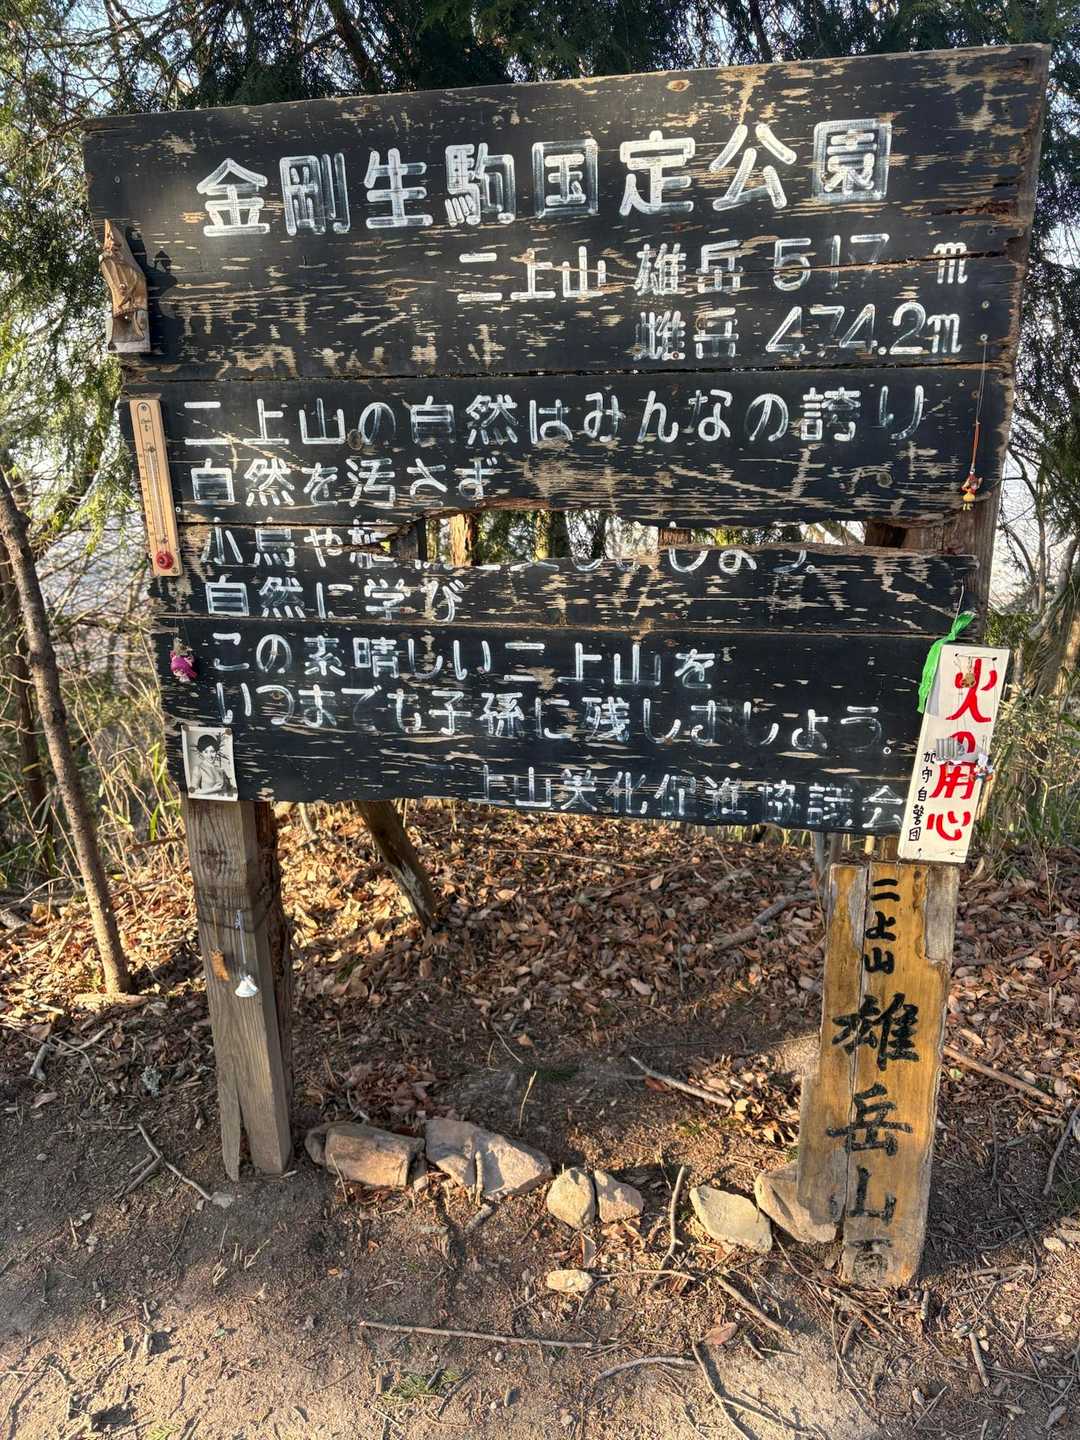 金剛生駒国定公園
二上山 雄岳 517 m
雌岳 474.2m
二上山の自然はみんなの誇り
自然を汚さず
小鳥や しましょう。
自然に学び
この素晴しい二上山を
いつまでも子孫に残しましょう。
上山美化促進協議会
火の用心
加守自警団
二上山
雄岳山